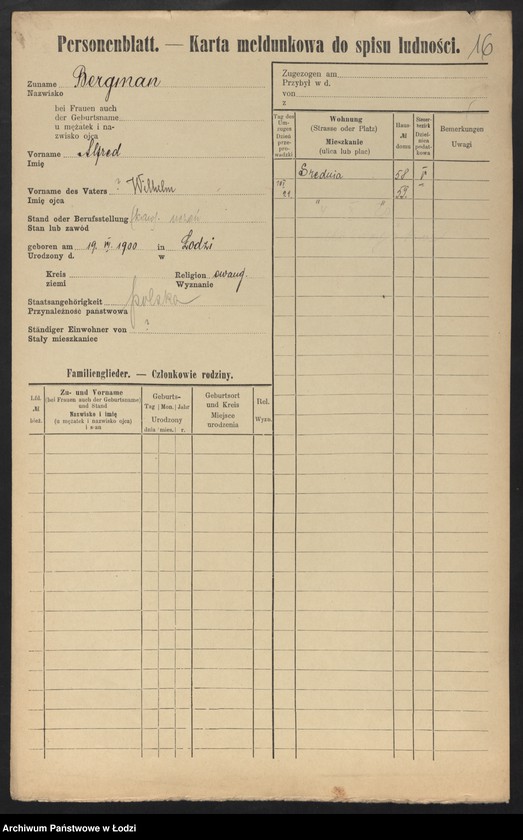 Personenblatt. — Karta meldunkowa do spisu ludności. 16
Zuname Bergman
Nazwisko
bei Frauen auch
der Geburtsname
u mężatek i na-
zwisko ojca
Vorname Alfred
Imię
Vorname des Vaters ? Wilhelm
Imię ojca
Stand oder Berufsstellung
Stan lub zawód
geboren am 19. 1900 in Łodzi
Urodzony d. w
Kreis Religion ewang.
ziemi Wyznanie
Staatsangehörigkeit polska
Przynależność państwowa
Ständiger Einwohner von ?
Stały mieszkaniec
Familienglieder. — Członkowie rodziny.
Lfd. № bież.
Zu- und Vorname
(bei Frauen auch der Geburtsname)
und Stand
Nazwisko i imię
(u mężatek i nazwisko ojca)
i stan
Geburts-
Tag | Mon. | Jahr
Urodzony
dnia | mies. | r.
Geburtsort
und Kreis
Miejsce
urodzenia
Rel.
Wyzn.
Zugezogen am
Przybył w d.
von
z
Tag des
Um-
zuges
Dzień
prze-
pro-
wadzki
Wohnung
(Strasse oder Platz)
Mieszkanie
(ulica lub plac)
Haus-
№
domu
Bemerkungen
Uwagi
Średnia 58
" "
Archiwum Państwowe w Łodzi